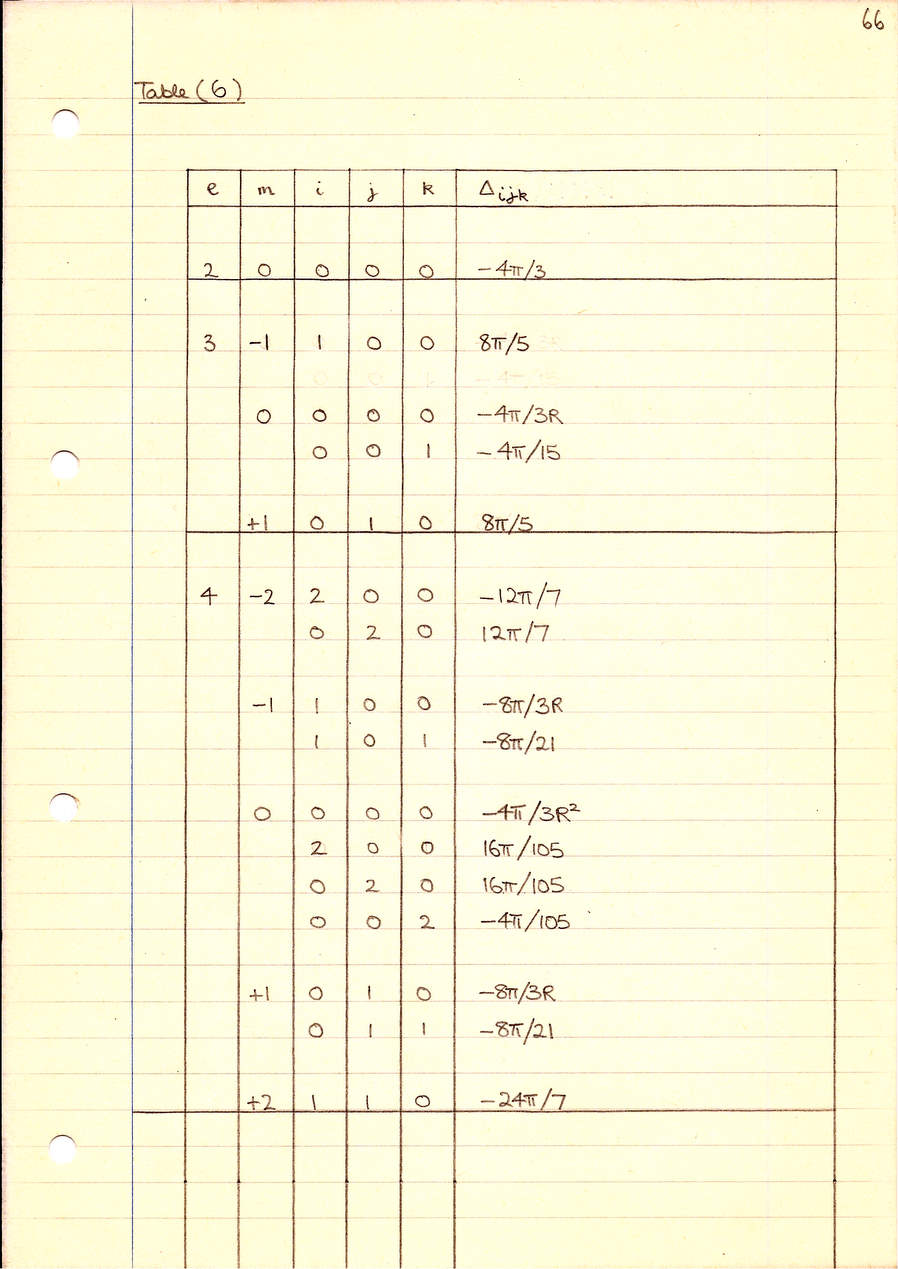 66
Table (6)
e m i j k Δijk
2 0 0 0 0 -4π/3
3 -1 1 0 0 8π/5
0 0 0 0 -4π/3R
0 0 1 -4π/15
+1 0 1 0 8π/5
4 -2 2 0 0 -12π/7
0 2 0 12π/7
-1 1 0 0 -8π/3R
1 0 1 -8π/21
0 0 0 0 -4π/3R²
2 0 0 16π/105
0 2 0 16π/105
0 0 2 -4π/105
+1 0 1 0 -8π/3R
0 1 1 -8π/21
+2 1 1 0 -24π/7